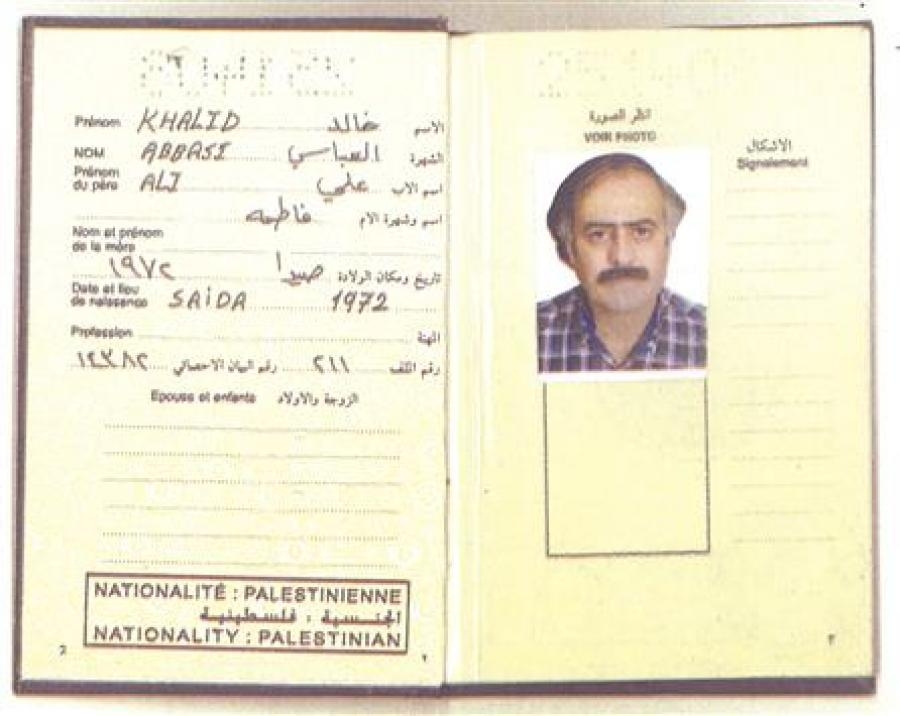 Prénom KHALID خالد الاسم
NOM ABBASI العباسي الشهرة
Prénom du père ALI علي اسم الاب
فاطمه اسم وشهرة الام
Nom et prénom de la mère
١٩٧٢ صيدا تاريخ ومكان الولادة
Date et lieu de naissance SAIDA 1972
Profession المهنة
رقم الملف ٢١١ رقم البيان الاحصائي
Epouse et enfants الزوجة والاولاد
NATIONALITÉ : PALESTINIENNE
الجنسية : فلسطينية
NATIONALITY : PALESTINIAN
2 ٢
انظر الصورة
VOIR PHOTO
الاشكال
Signalement
٣